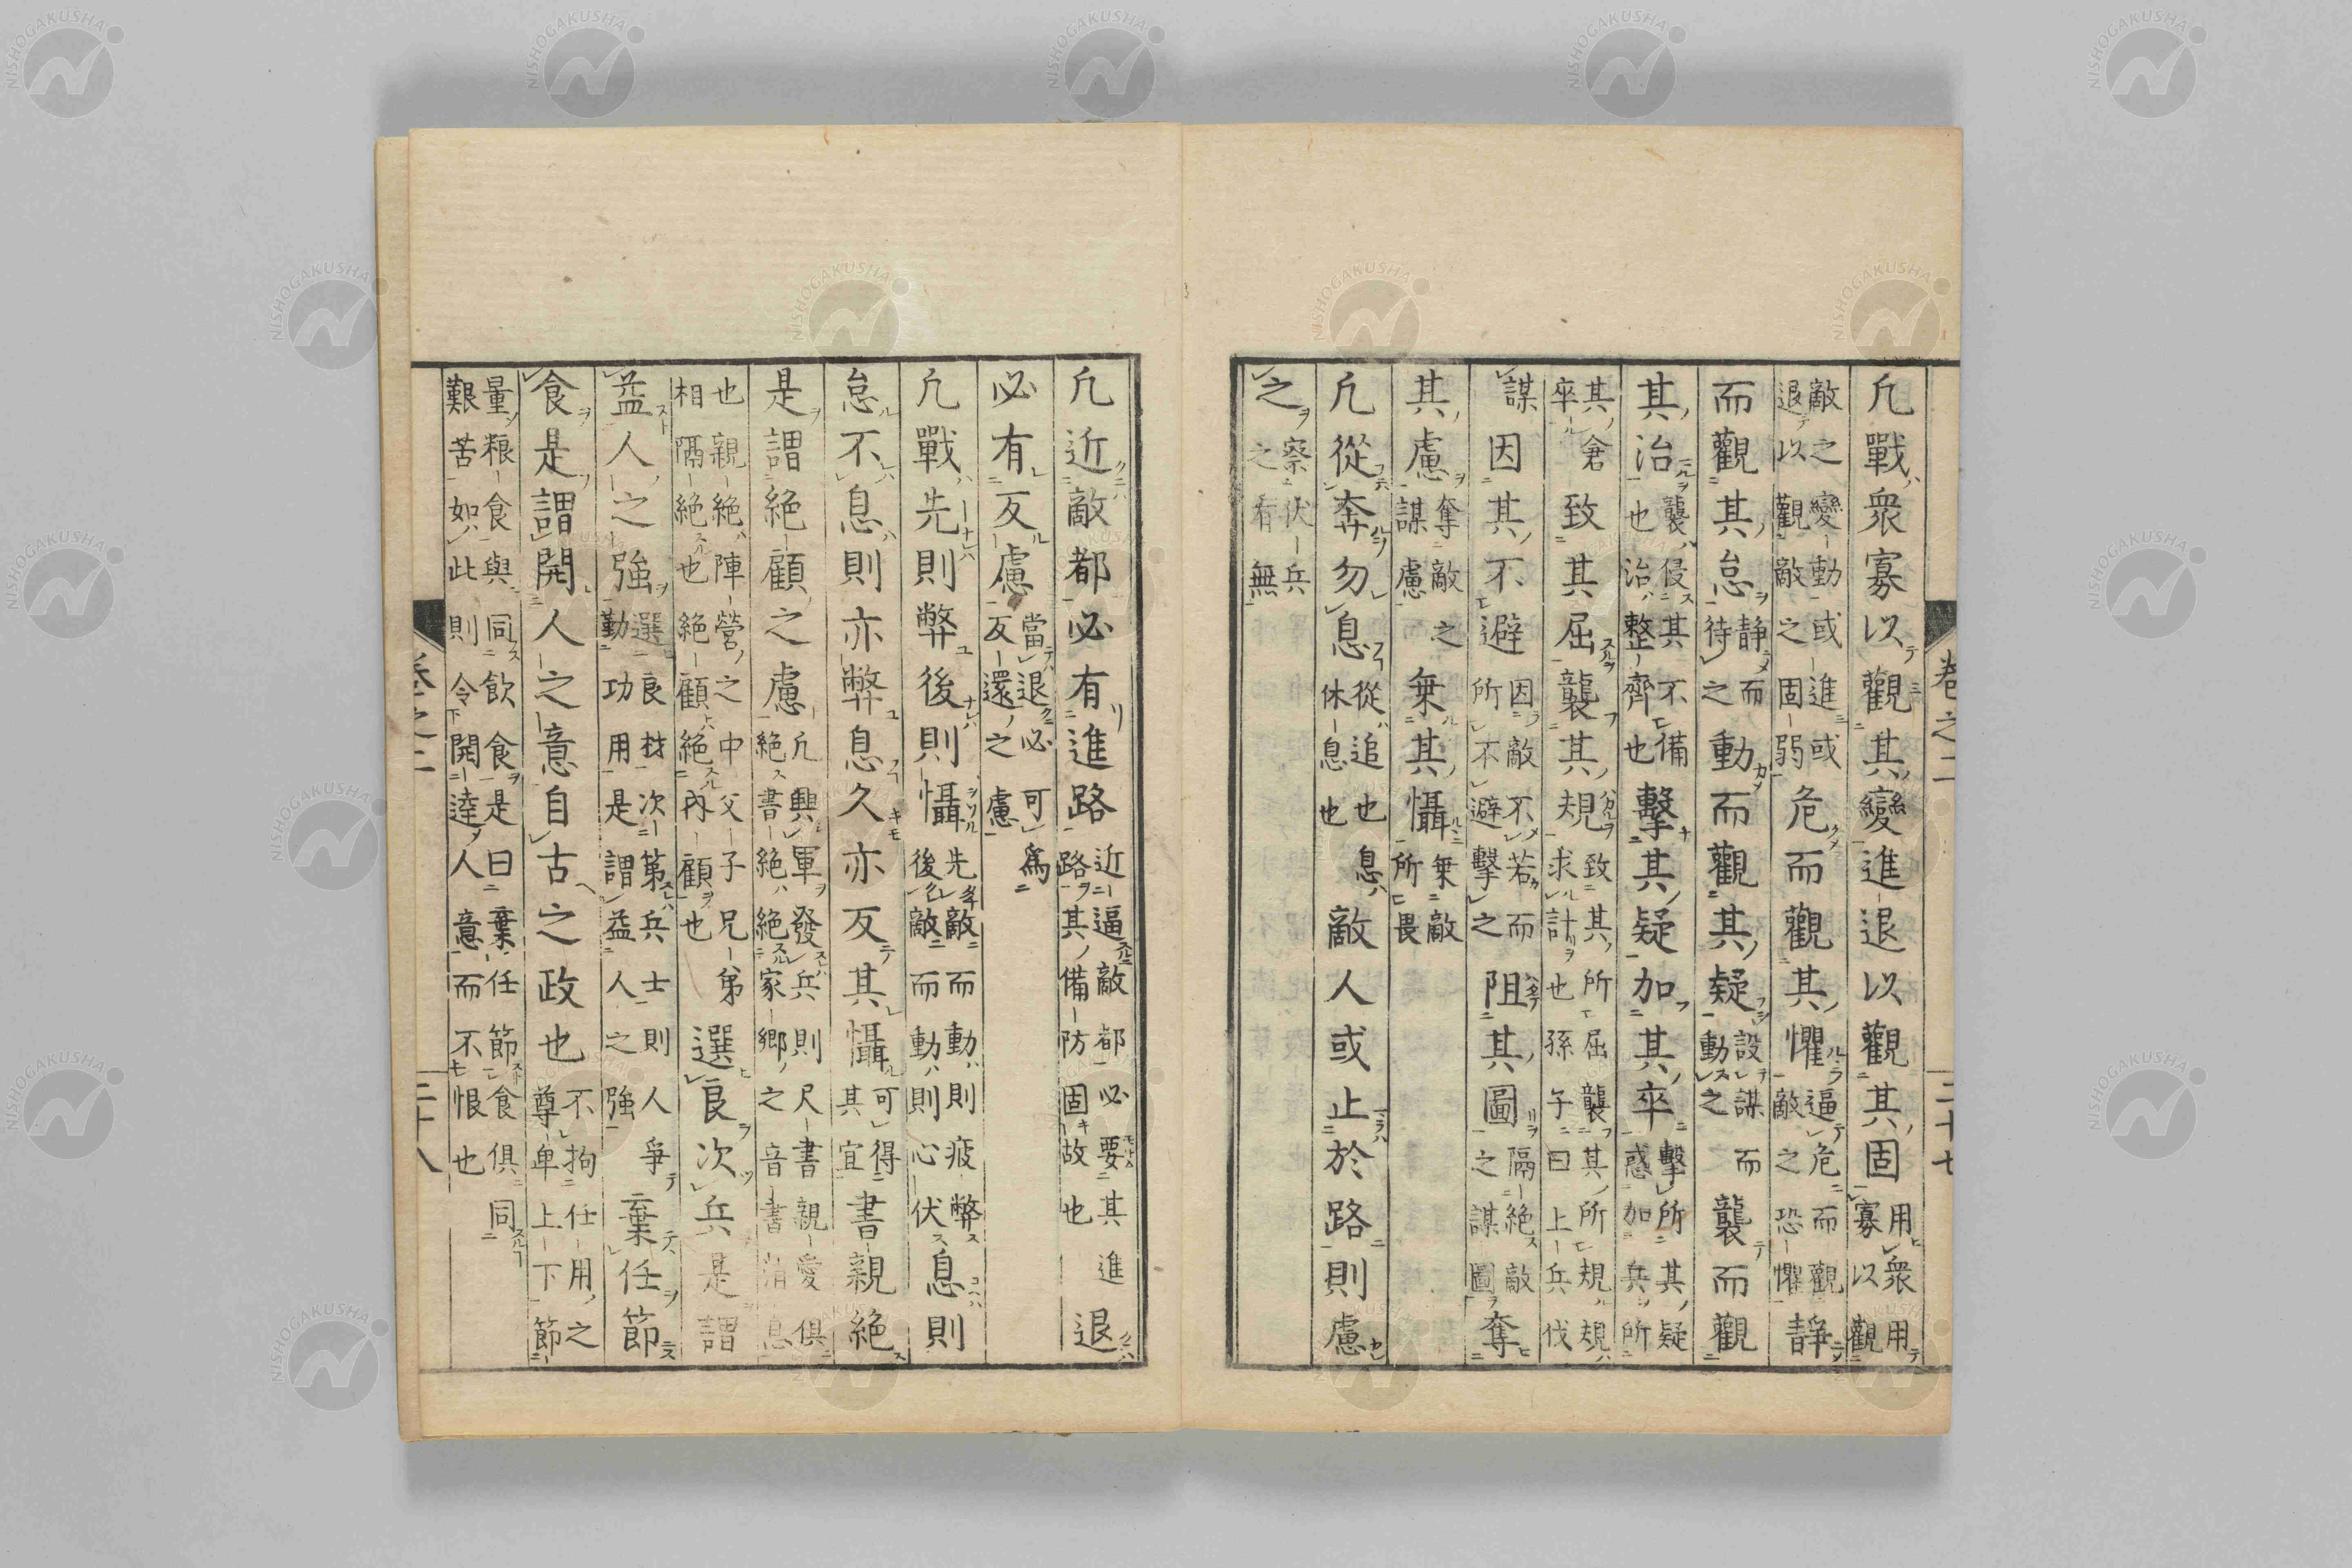 卷之二
二十七
凢戰衆寡以觀其變進退以觀其固用衆用寡以觀
敵之變動或進或退以觀敵之固弱危而觀其懼逼危而觀敵之恐懼靜
而觀其怠静而待之動而觀其疑設謀而動之襲而觀
其治襲侵其不備也治整齊也擊其疑加其卒擊所其疑惑加兵所
其倉卒致其屈襲其規致其所屈襲其所規規求計也孫子曰上兵伐
謀因其不避因敵不若而所不避擊之阻其圖隔絶敵之謀圖奪
其慮奪敵之謀慮乗其懾乗敵所畏
凢從奔勿息從追也息休息也敵人或止於路則慮
之察伏兵之有無
凢近敵都必有進路近逼敵都必要其進路其備防固故也退
必有反慮當退必可爲反還之慮
凢戰先則弊後則懾先敵而動則疲弊後敵而動則心伏息則
怠不息則亦弊息久亦反其懾可得其宜書親絶
是謂絶顧之慮凢興軍發兵則尺書親愛俱絶書絶絶家鄉之音書消息
也親絶陣營之中父子兄弟相隔絶也絶顧絶內顧也選良次兵是謂
益人之強選良材次第兵士則人爭勤功用是謂益人之強棄任節
食是謂開人之意自古之政也不拘任用之尊卑上下節
量粮食與同飲食是曰棄任節食俱同艱苦如此則令開達人意而不恨也
卷之二
二十八